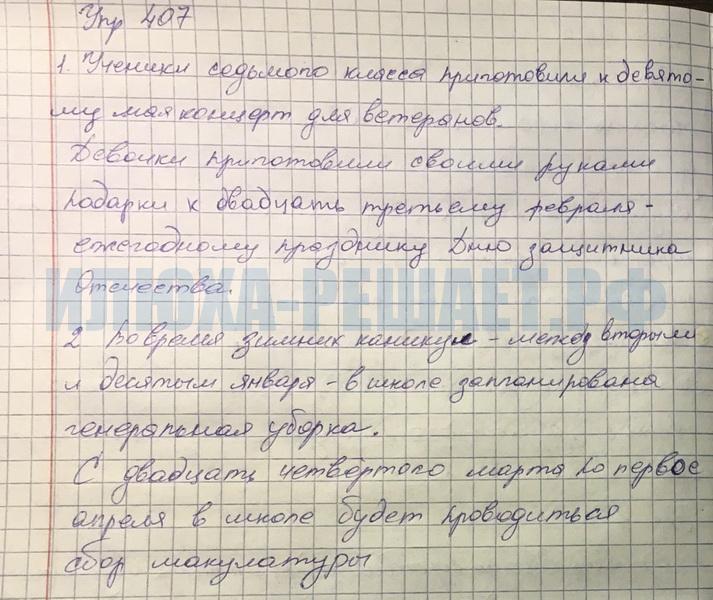 Упр 407
1. Ученики седьмого класса приготовили к девято-
му мая концерт для ветеранов.
Девочки приготовили своими руками
подарки к двадцать третьему февраля -
ежегодному празднику Дню защитника
Отечества.
ИЛЮХА-РЕШАЕТ.РФ
2 Во время зимних каникул - между вторым
и десятым января - в школе запланирована
генеральная уборка.
С двадцать четвёртого марта по первое
апреля в школе будет проводиться
сбор макулатуры